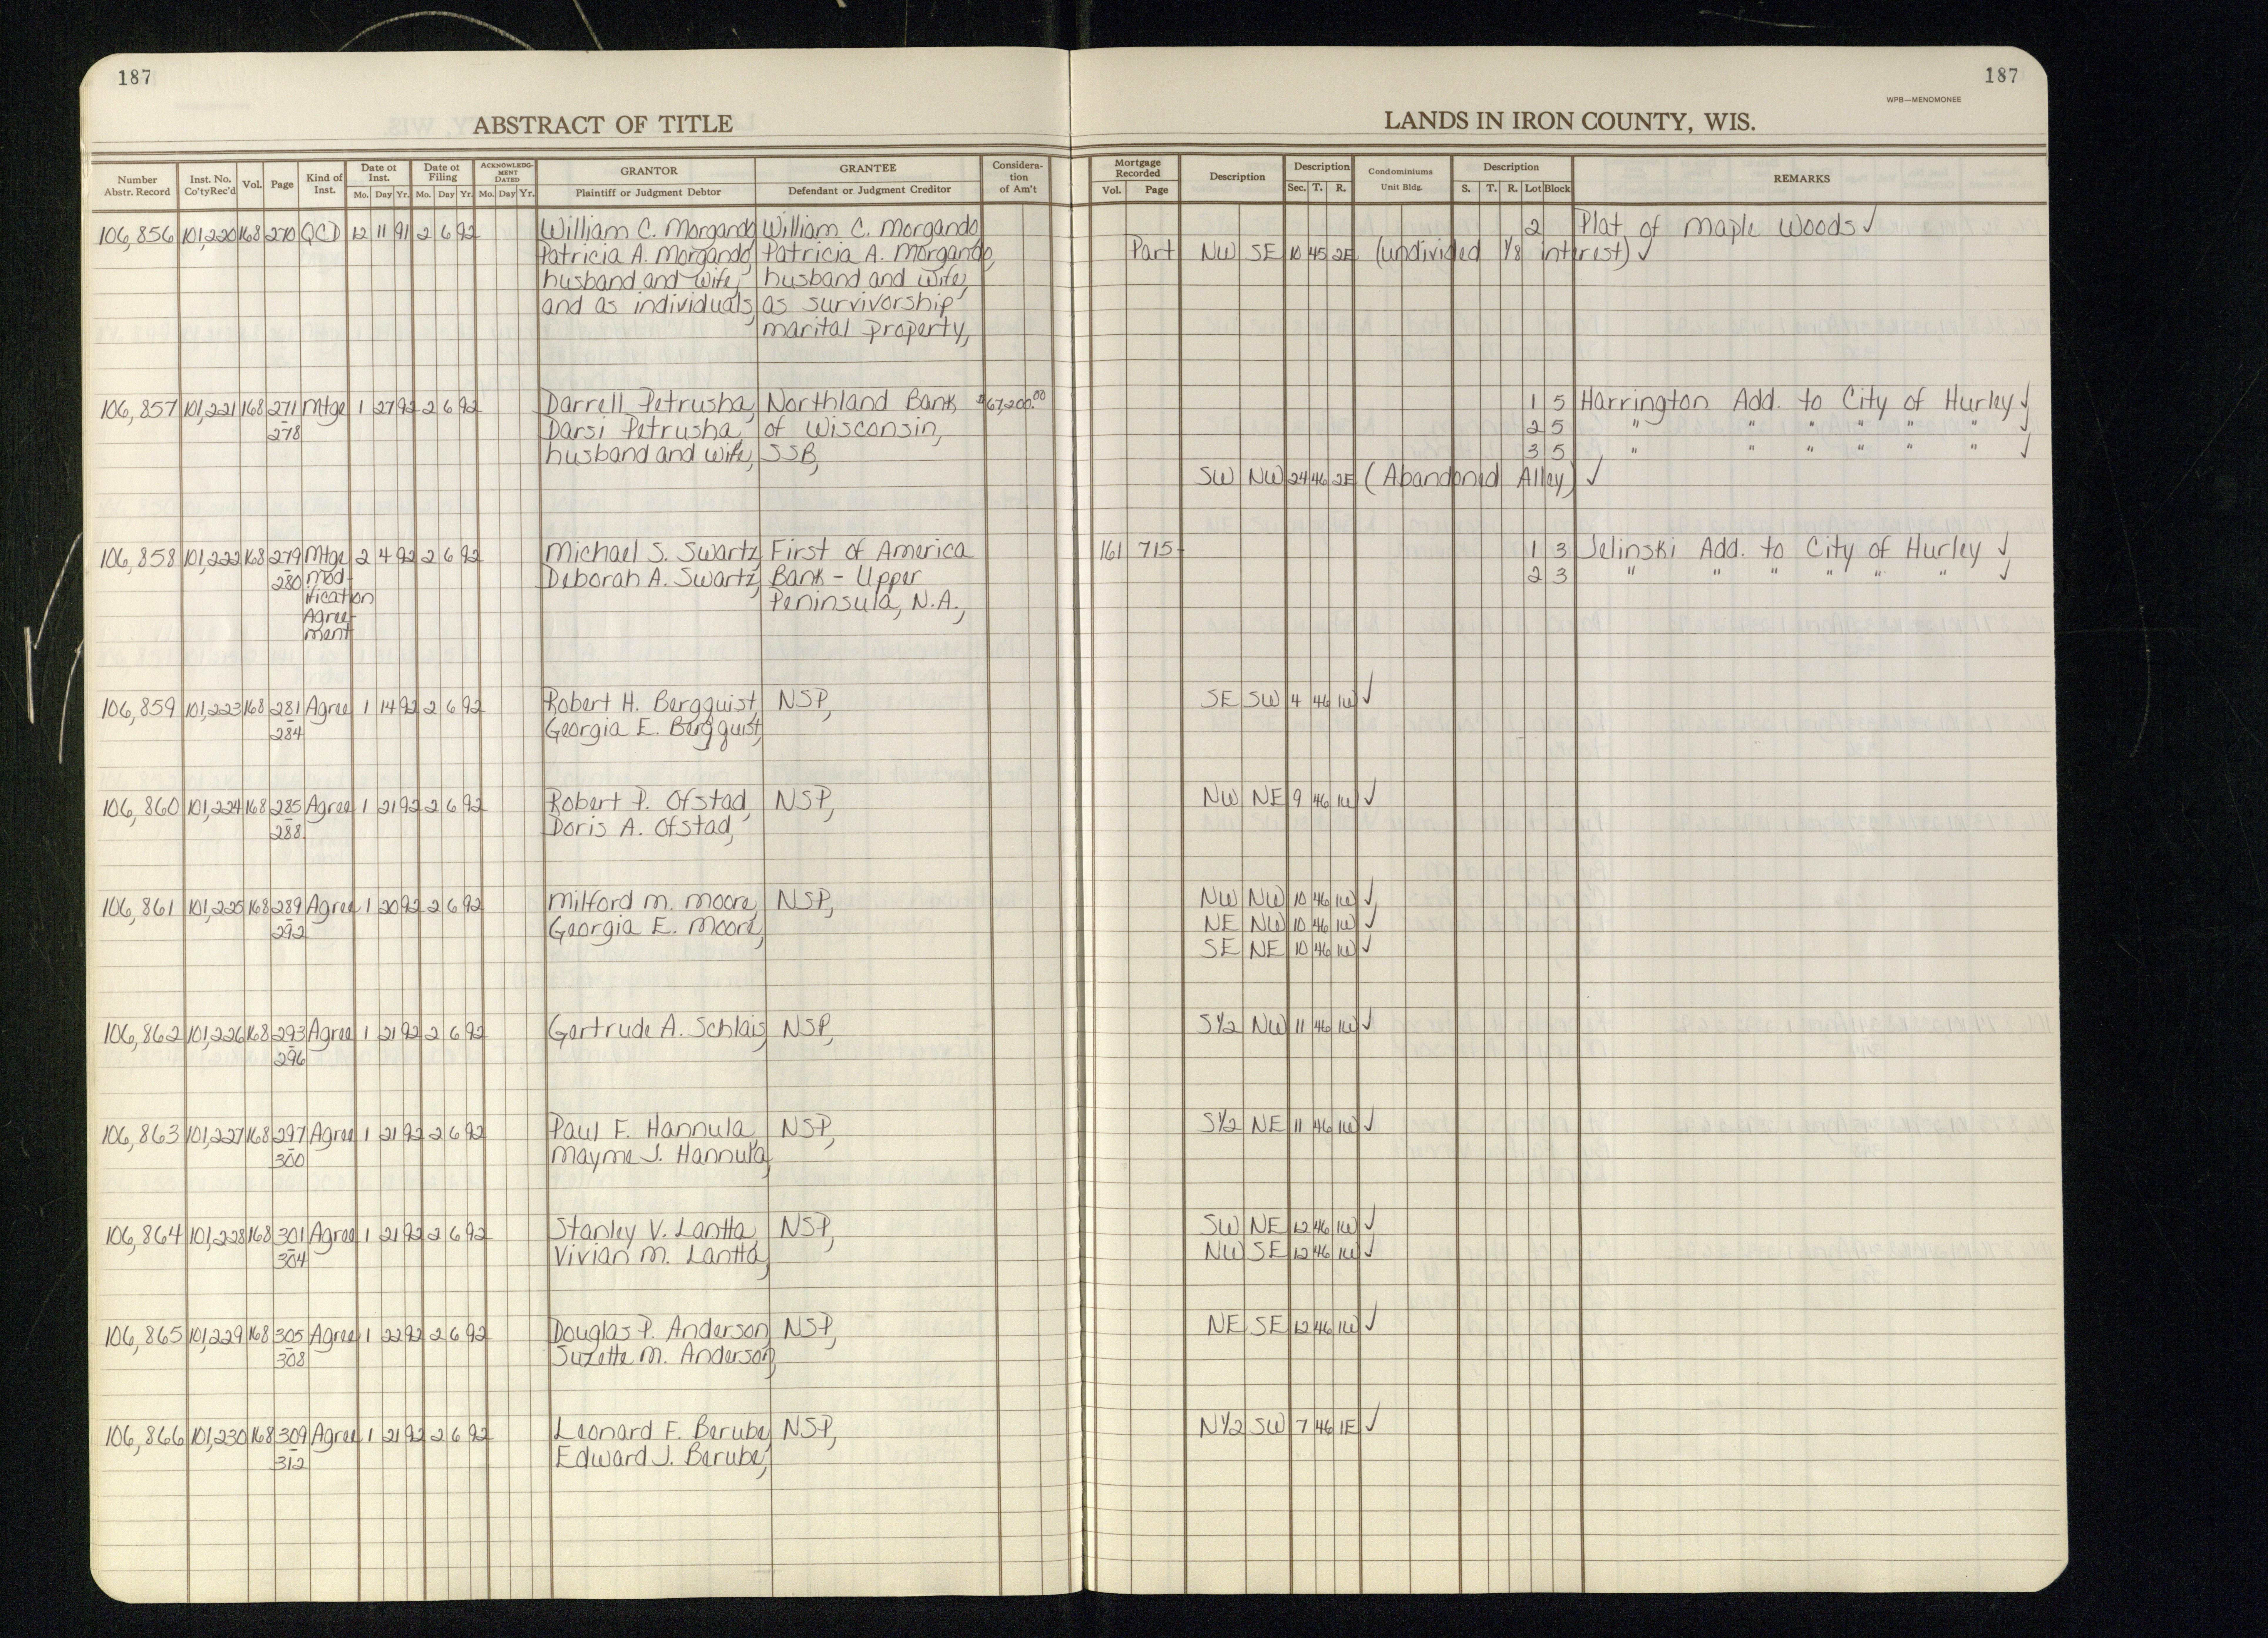 187
187
WPB—MENOMONEE
ABSTRACT OF TITLE
LANDS IN IRON COUNTY, WIS.
Number Abstr. Record Inst. No. Co'tyRec'd Vol. Page Kind of Inst. Date of Inst. Mo. Day Yr. Date of Filing Mo. Day Yr. ACKNOWLEDGMENT DATED Mo. Day Yr. GRANTOR Plaintiff or Judgment Debtor GRANTEE Defendant or Judgment Creditor Consideration of Am't Mortgage Recorded Vol. Page Description Description Sec. T. R. Condominiums Unit Bldg. Description S. T. R. Lot Block REMARKS
106,856 101,220 168 270 QCD 12 11 91 2 6 92 William C. Morgando William C. Morgando 2 Plat of Maple Woods ✓
Patricia A. Morgando, Patricia A. Morgando, Part NW SE 10 45 2E (undivided 1/8 interest) ✓
husband and wife, husband and wife,
and as individuals, as survivorship
marital property,
106,857 101,221 168 271 Mtge 1 27 92 2 6 92 Darrell Petrusha, Northland Bank $67,200.00 1 5 Harrington Add. to City of Hurley ✓
- 278 Darsi Petrusha, of Wisconsin, 2 5 " " " " " " ✓
husband and wife, SSB, 3 5 " " " " " " ✓
SW NW 24 46 2E (Abandoned Alley) ✓
106,858 101,222 168 279 Mtge 2 4 92 2 6 92 Michael S. Swartz, First of America 161 715 1 3 Jelinski Add. to City of Hurley ✓
- 280 Mod- Deborah A. Swartz, Bank - Upper 2 3 " " " " " " ✓
ification Peninsula, N.A.,
Agree-
ment
106,859 101,223 168 281 Agree 1 14 92 2 6 92 Robert H. Bergquist, NSP, SE SW 4 46 1W ✓
- 284 Georgia E. Bergquist,
106,860 101,224 168 285 Agree 1 21 92 2 6 92 Robert P. Ofstad, NSP, NW NE 9 46 1W ✓
- 288 Doris A. Ofstad,
106,861 101,225 168 289 Agree 1 20 92 2 6 92 Milford M. Moore, NSP, NW NW 10 46 1W ✓
- 292 Georgia E. Moore, NE NW 10 46 1W ✓
SE NE 10 46 1W ✓
106,862 101,226 168 293 Agree 1 21 92 2 6 92 Gertrude A. Schlais, NSP, S1/2 NW 11 46 1W ✓
- 296
106,863 101,227 168 297 Agree 1 21 92 2 6 92 Paul F. Hannula, NSP, S1/2 NE 11 46 1W ✓
- 300 Mayme J. Hannula,
106,864 101,228 168 301 Agree 1 21 92 2 6 92 Stanley V. Lantta, NSP, SW NE 12 46 1W ✓
- 304 Vivian M. Lantta, NW SE 12 46 1W ✓
106,865 101,229 168 305 Agree 1 22 92 2 6 92 Douglas P. Anderson, NSP, NE SE 12 46 1W ✓
- 308 Suzette M. Anderson,
106,866 101,230 168 309 Agree 1 21 92 2 6 92 Leonard F. Berube, NSP, N1/2 SW 7 46 1E ✓
- 312 Edward J. Berube,